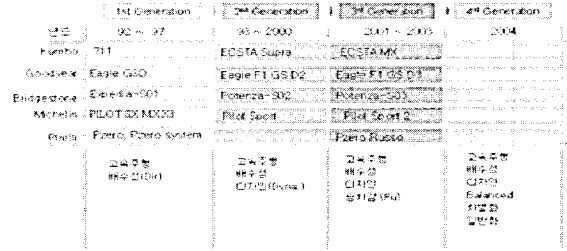 1st Generation 2nd Generation 3rd Generation 4th Generation
92 ~ 97 98 ~ 2000 2001 ~ 2003 2004
Kumho 711 ECSTA Supra ECSTA MX
Goodyear Eagle GSD Eagle F1 GS D2 Eagle F1 GS D3
Bridgestone Expedia-S01 Potenza-S02 Potenza-S03
Michelin PILOT SX MXX3 Pilot Sport Pilot Sport 2
Pirelli Pzero, Pzero system Pzero Rosso
고속주행 고속주행 고속주행 고속주행
배수성(Dir) 배수성 배수성 배수성
디자인 디자인 디자인
Balanced
차별화
일반화